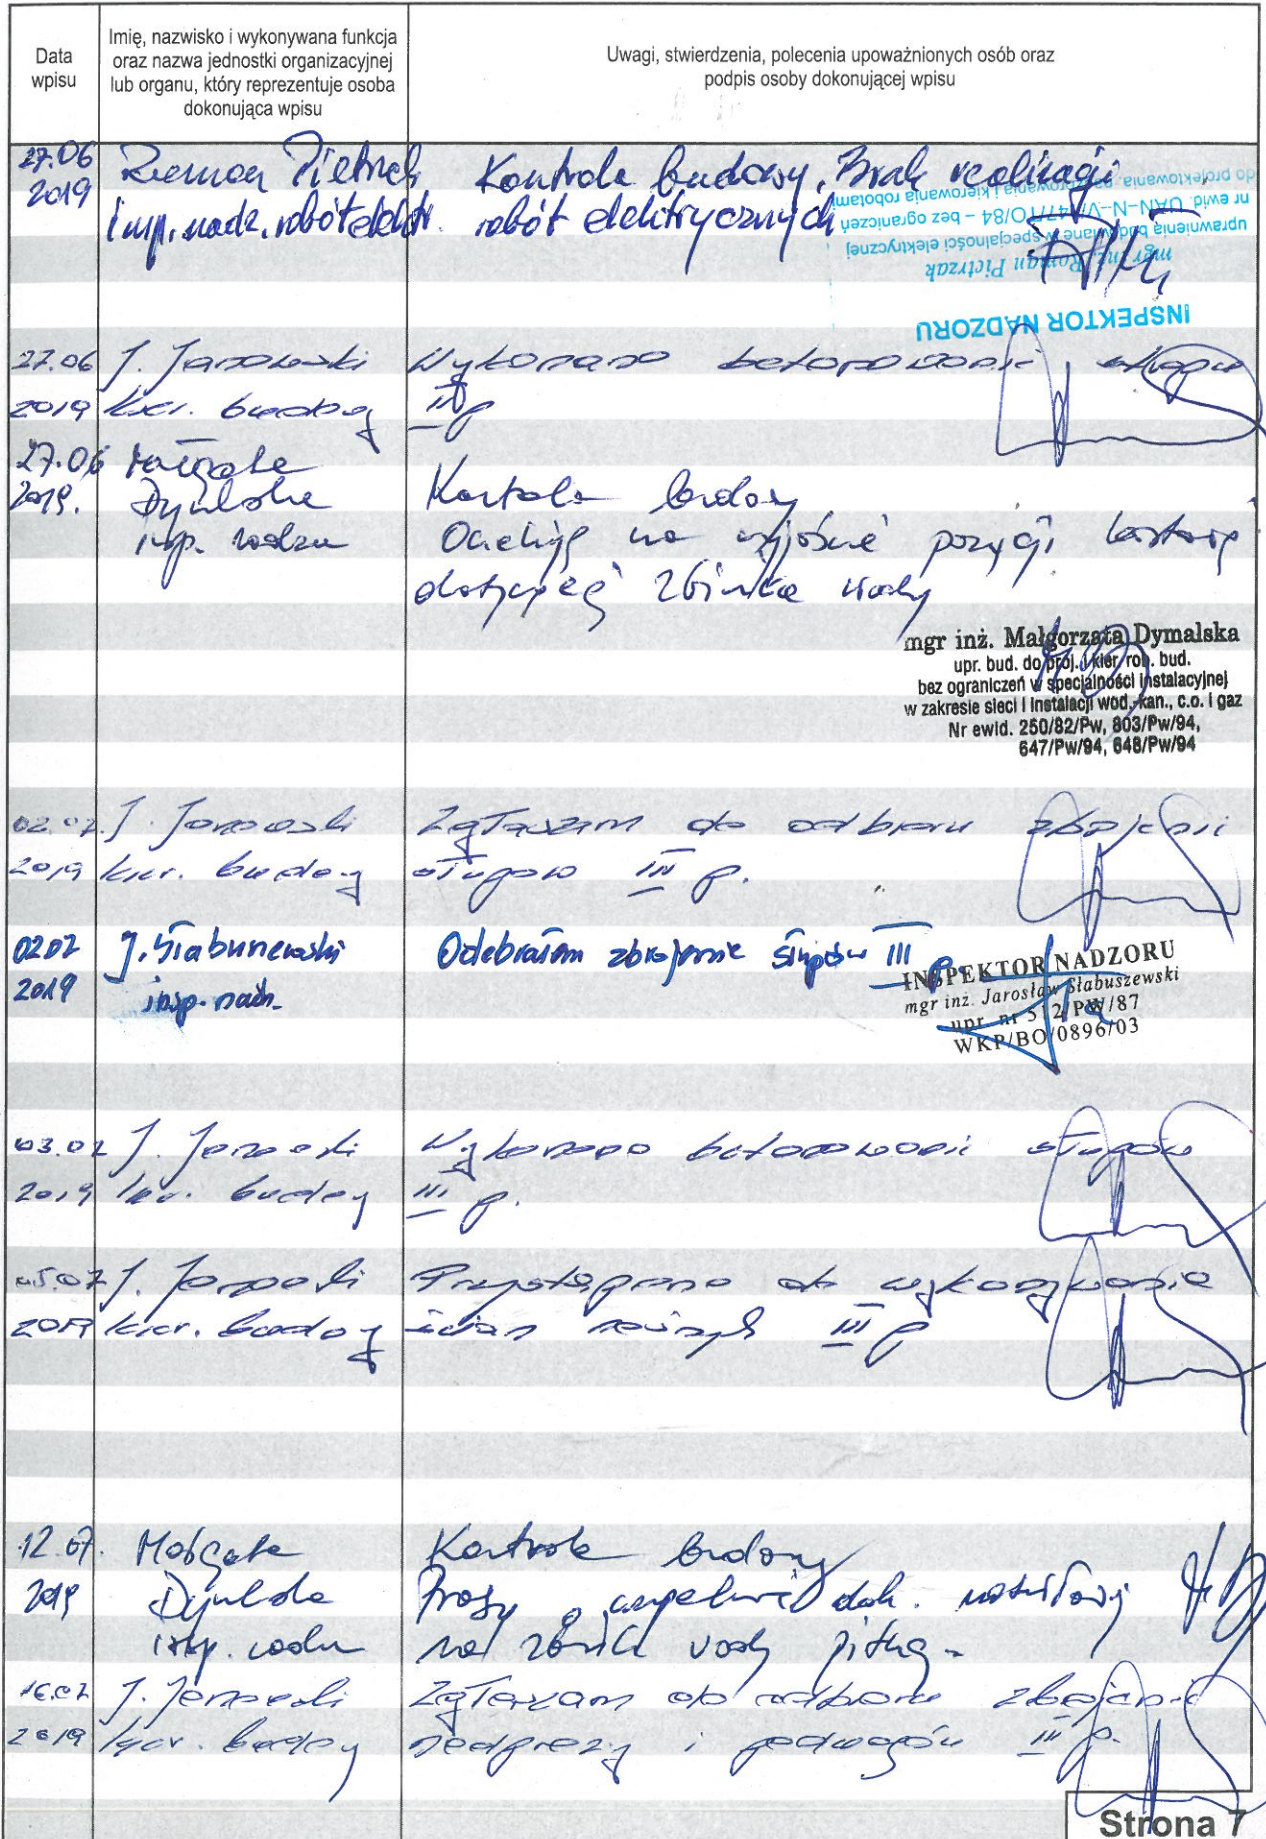 Data
wpisu
Imię, nazwisko i wykonywana funkcja
oraz nazwa jednostki organizacyjnej
lub organu, który reprezentuje osoba
dokonująca wpisu
Uwagi, stwierdzenia, polecenia upoważnionych osób oraz
podpis osoby dokonującej wpisu
27.06
2019
Kontrola budowy. Brak realizacji
robót elektrycznych
INSPEKTOR NADZORU
mgr inż. Roman Pietrzak
uprawnienia budowlane w specjalności elektrycznej
– bez ograniczeń
do projektowania, i kierowania robotami
27.06
2019
kier. budowy
Wykonano betonowanie
27.06
2019.
Dymalska
insp. nadzoru
Kontrola budowy
Oczekuję na pozycji
zbiornika wody
mgr inż. Małgorzata Dymalska
upr. bud. do proj. i kier. rob. bud.
bez ograniczeń w specjalności instalacyjnej
w zakresie sieci i instalacji wod.-kan., c.o. i gaz
Nr ewid. 250/82/Pw, 803/Pw/94,
647/Pw/94, 648/Pw/94
02.07
2019
kier. budowy
Zgłaszam do odbioru zbrojenie
słupów III p.
02.07
2019
insp. nadz.
Odebrałem zbrojenie słupów III p.
INSPEKTOR NADZORU
mgr inż. Jarosław Słabuszewski
upr. nr 512/PW/87
WKP/BO/0896/03
03.07
2019
kier. budowy
Wykonano betonowanie słupów
III p.
05.07
2019
kier. budowy
Przystąpiono do wykonywania
ścian III p
12.07.
2019
Dymalska
insp. nadzoru
Kontrola budowy
Proszę uzupełnić dok.
na wody pitnej
16.07
2019
kier. budowy
Zgłaszam do odbioru zbrojenie
nadproży i podciągów III p.
Strona 7